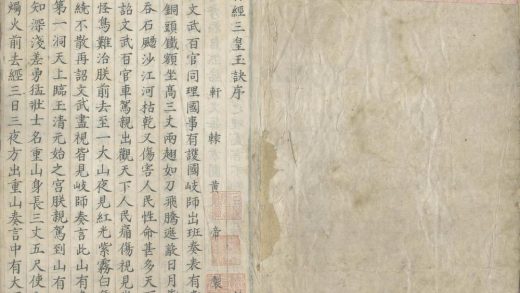 經三皇玉訣序
軒轅黃帝製
文武百官同理國事有護國岐師出班奏表有
銅頭鐵額坐高三丈兩翅如刀飛騰遮蔽日月
吞石颺沙江河枯乾又傷害人民性命甚多天
詔文武百官車駕親出觀天下人民痛傷視見
怪鳥難治朕前去至一大山夜見紅光紫霧白
繞不散再詔文武盡視皆見岐師奏言此山有
第一洞天上臨玉清元始之宮朕親駕到山有
知深淺差勇猛壯士名重山身長三丈五尺使
燭火前去經三日三夜方出重山奏言中有大